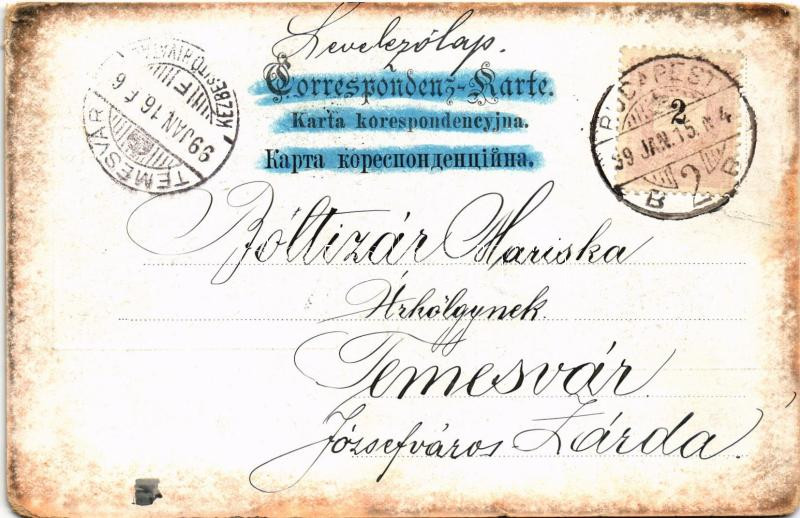 Levelezőlap.
Correspondenz-Karte.
Karta korespondencyjna.
Карта кореспонденційна.
2
BUDAPEST
99 JAN. 15. N 4
2
TEMESVÁR
99 JAN 16 F 6
KÉZBESITŐ HIVATAL
Bóltizár Mariska
Úrhölgynek
Temesvár
Józsefváros Zárda.